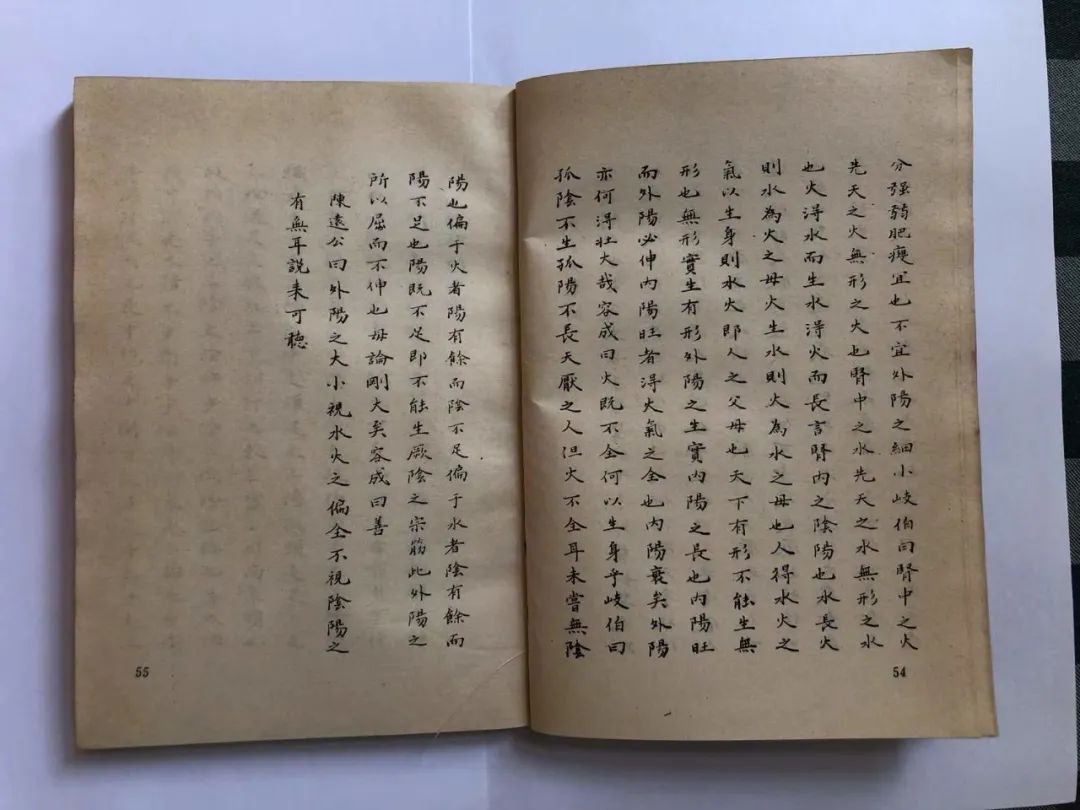 分强弱肥瘦宜也不宜外陽之細小岐伯曰腎中之火
先天之火無形之火也腎中之水先天之水無形之水
也火得水而生水得火而長言腎内之陰陽也水長火
則水為火之母火生水則火為水之母也人得水火之
氣以生身則水火即人之父母也天下有形不能生無
形也無形實生有形外陽之生實内陽之長也内陽旺
而外陽必伸内陽旺者得火氣之全也内陽衰矣外陽
亦何得壮大哉容成曰火既不全何以生身乎岐伯曰
孤陰不生孤陽不長天厭之人但火不全耳未嘗無陰
54
陽也偏于火者陽有餘而陰不足偏于水者陰有餘而
陽不足也陽既不足即不能生厥陰之宗筋此外陽之
所以屈而不伸也毋論剛大矣容成曰善
陳遠公曰外陽之大小視水火之偏全不視陰陽之
有無耳説来可聽
55